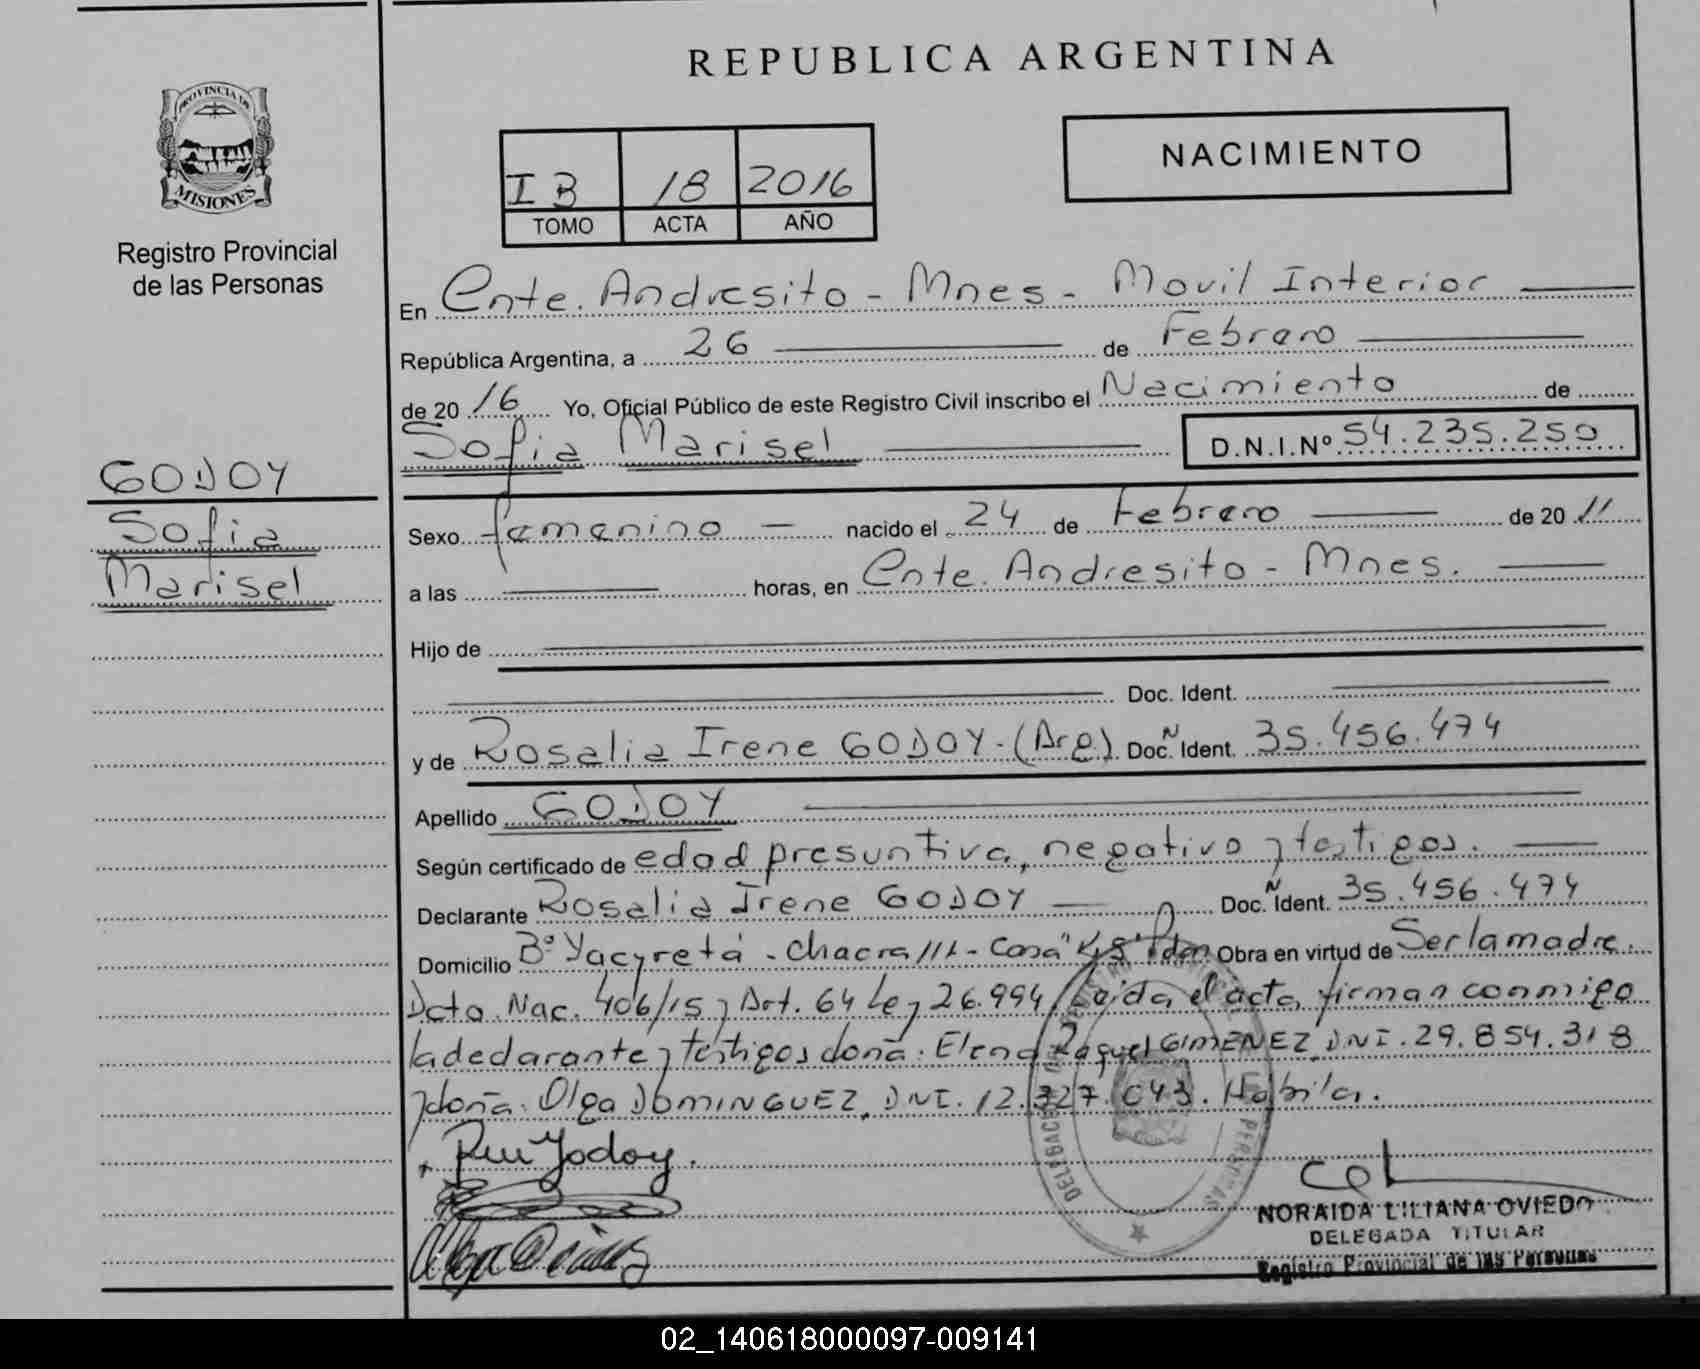 REPUBLICA ARGENTINA
PROVINCIA DE
MISIONES
Registro Provincial
de las Personas
NACIMIENTO
I B 18 2016
TOMO ACTA AÑO
En Cnte. Andresito - Mnes - Movil Interior
República Argentina, a 26 de Febrero
de 20 16 Yo, Oficial Público de este Registro Civil inscribo el Nacimiento de
Sofia Marisel D.N.I.Nº 54.235.250
GODOY
Sofia
Marisel
Sexo femenino nacido el 24 de Febrero de 20 11
a las horas, en Cnte. Andresito - Mnes.
Hijo de
Doc. Ident.
y de Rosalia Irene GODOY - (Arg) Doc. N Ident. 35.456.474
Apellido GODOY
Según certificado de edad presuntiva, negativo y testigos.
Declarante Rosalia Irene GODOY Doc. N Ident. 35.456.474
Domicilio Bº Yacyretá - Chacra 111 - Casa Obra en virtud de Ser la madre.
Dcto. Nac. 406/15 y Art. 64 Ley 26.994/ Leida el acta, firman conmigo
la declarante y testigos doña: Elena Raquel GIMENEZ, DNI. 29.854.318
y doña: Olga DOMINGUEZ, DNI. 12.327.643. Habila.
Godoy
NORAIDA LILIANA OVIEDO
DELEGADA TITULAR
Registro Provincial de las Personas
02_140618000097-009141